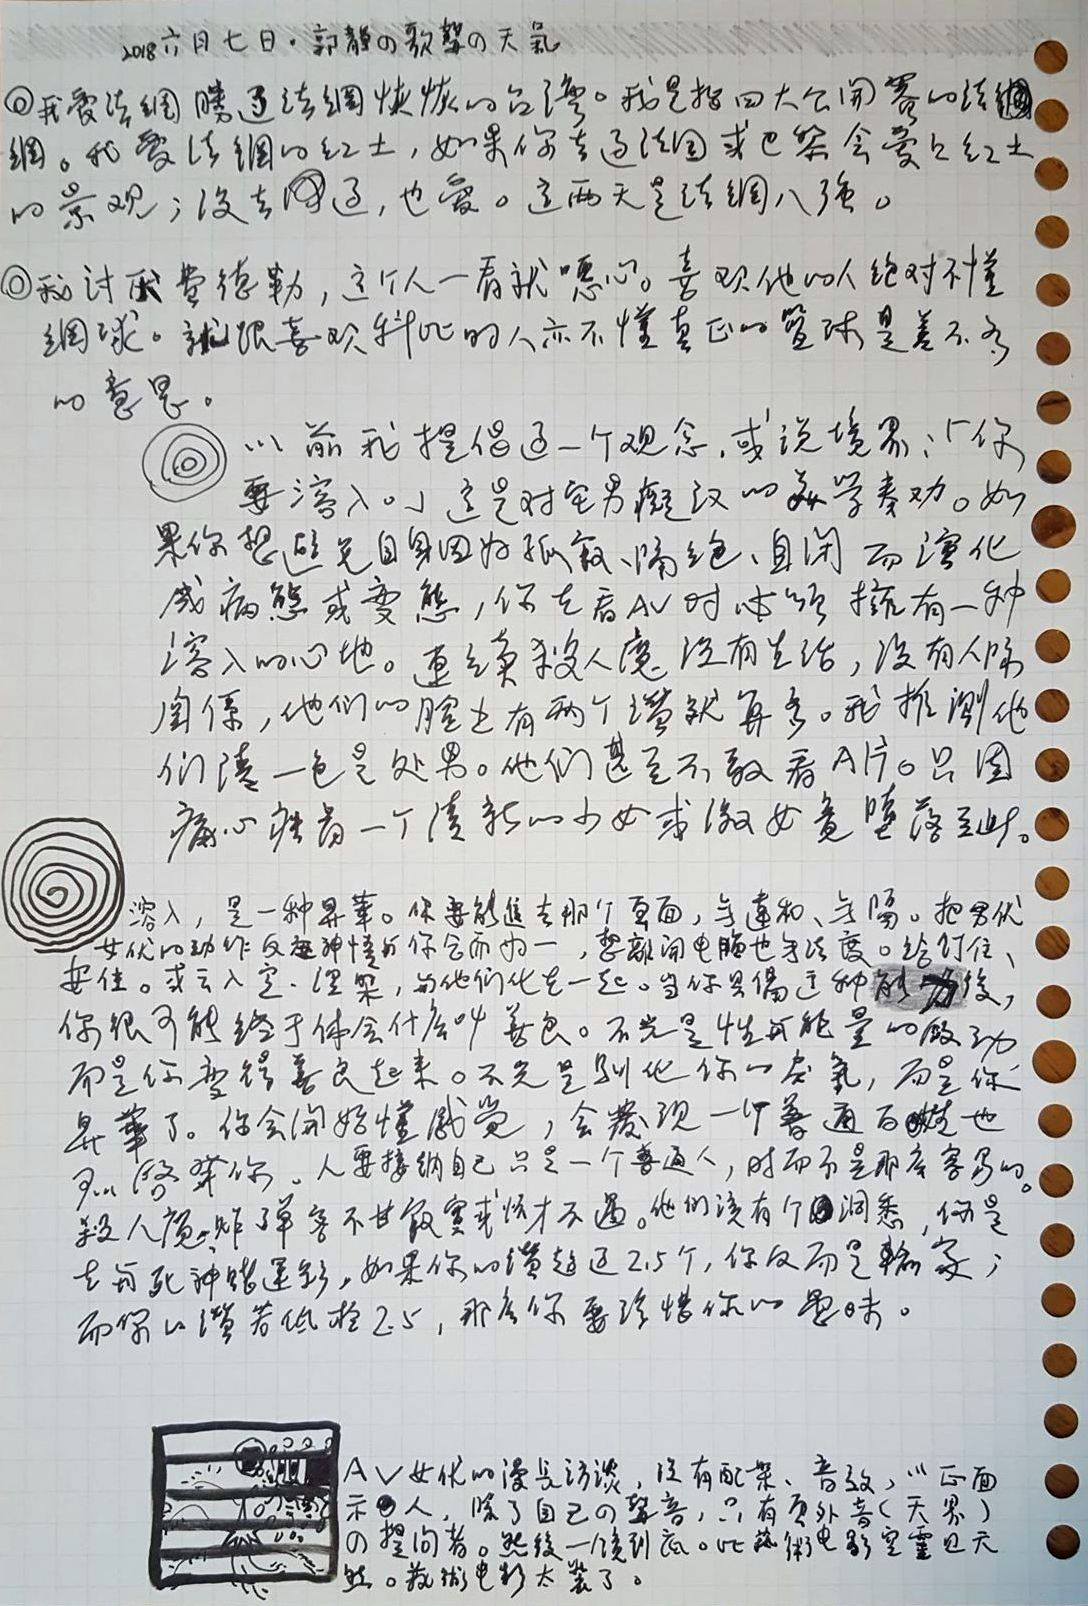 2018六月七日。郭靜の歌聲の天氣
◎我愛法網勝過法網恢恢的台灣。我是指四大公開賽的法網
網。我愛法網的紅土，如果你去過法國或巴黎會愛上紅土
的景观；沒去过過，也愛。这两天是法網八強。
◎我討厌費德勒，这个人一看就噁心。喜欢他的人绝对不懂
網球。就跟喜欢科比的人亦不懂真正的籃球是差不多
的意思。
以前我提倡过一个观念，或说境界：「你
要溶入。」这是对宅男癡汉的美学奏功。如
果你想避免自身因为孤寂、隔绝、自闭而演化
成病態或变態，你去看AV时必須擁有一种
溶入的心地。連續殺人魔沒有生活，沒有人际
関係，他们的腔上有两个讚就算多。我推測他
们清一色是处男。他们甚至不敢看A片。只因
痛心疾首一个清新的少女或淑女竟墮落至此。
溶入，是一种昇華。你要能進去那个頁面，无違和、无隔。把男优
女优的动作反应神情与你合而为一，想離開电腦也无法度。给钉住、
安住。或云入定、涅槃，与他们化在一起。当你具備这种能力後，
你很可能终于体会什么叫善良。不光是性与能量的啟动
而是你变得善良起来。不光是馴化你的戾氣，而是你
昇華了。你会開始懂感覺，会发现一个普通百姓也
可以啓發你。人要接納自己只是一个普通人，时而不是那么容易的。
殺人魔、炸彈客不甘寂寞或怀才不遇。他们沒有个洞悉，你是
去与死神賭運彩，如果你的讚超过2.5个，你反而是輸家；
而你的讚若低於2.5，那么你要珍惜你的思味。
AV女优的漫長訪談，沒有配樂、音效，以正面
示人，除了自己の聲音，只有頁外音（天界）
の提问者。然後一鏡到底。比藝術电影空靈且天
然。藝術电影太裝了。